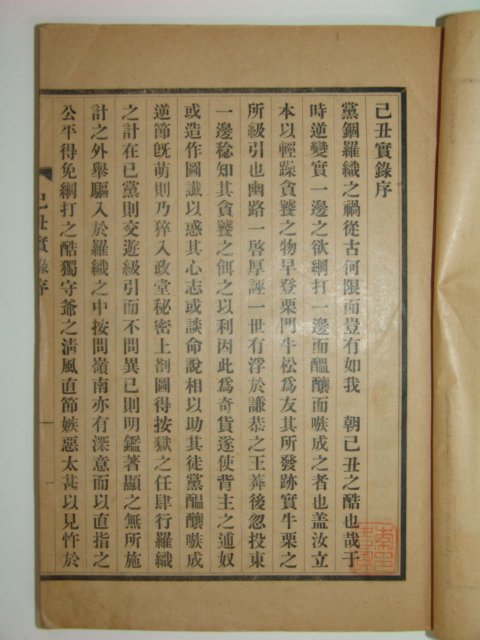 己丑實錄序
黨錮羅織之禍從古何限而豈有如我　朝己丑之酷也哉于
時逆變實一邊之欲網打一邊而醞釀而嗾成之者也盖汝立
本以輕躁貪饕之物早登栗門牛松爲友其所發跡實牛栗之
所級引也幽路一啓厚誣一世有浮於謙恭之王莾後忽投東
一邊稔知其貪饕之餌之以利因此爲奇貨遂使背主之逋奴
或造作圖讖以惑其心志或談命說相以助其徒黨醞釀嗾成
逆節旣萌則乃猝入政堂秘密上劄圖得按獄之任肆行羅織
之計在己黨則交遊級引而不問異己則明鑑著顯之無所施
計之外舉驅入於羅織之中按問嶺南亦有深意而以直指之
公平得免網打之酷獨守爺之淸風直節嫉惡太甚以見忤於
己丑實錄序